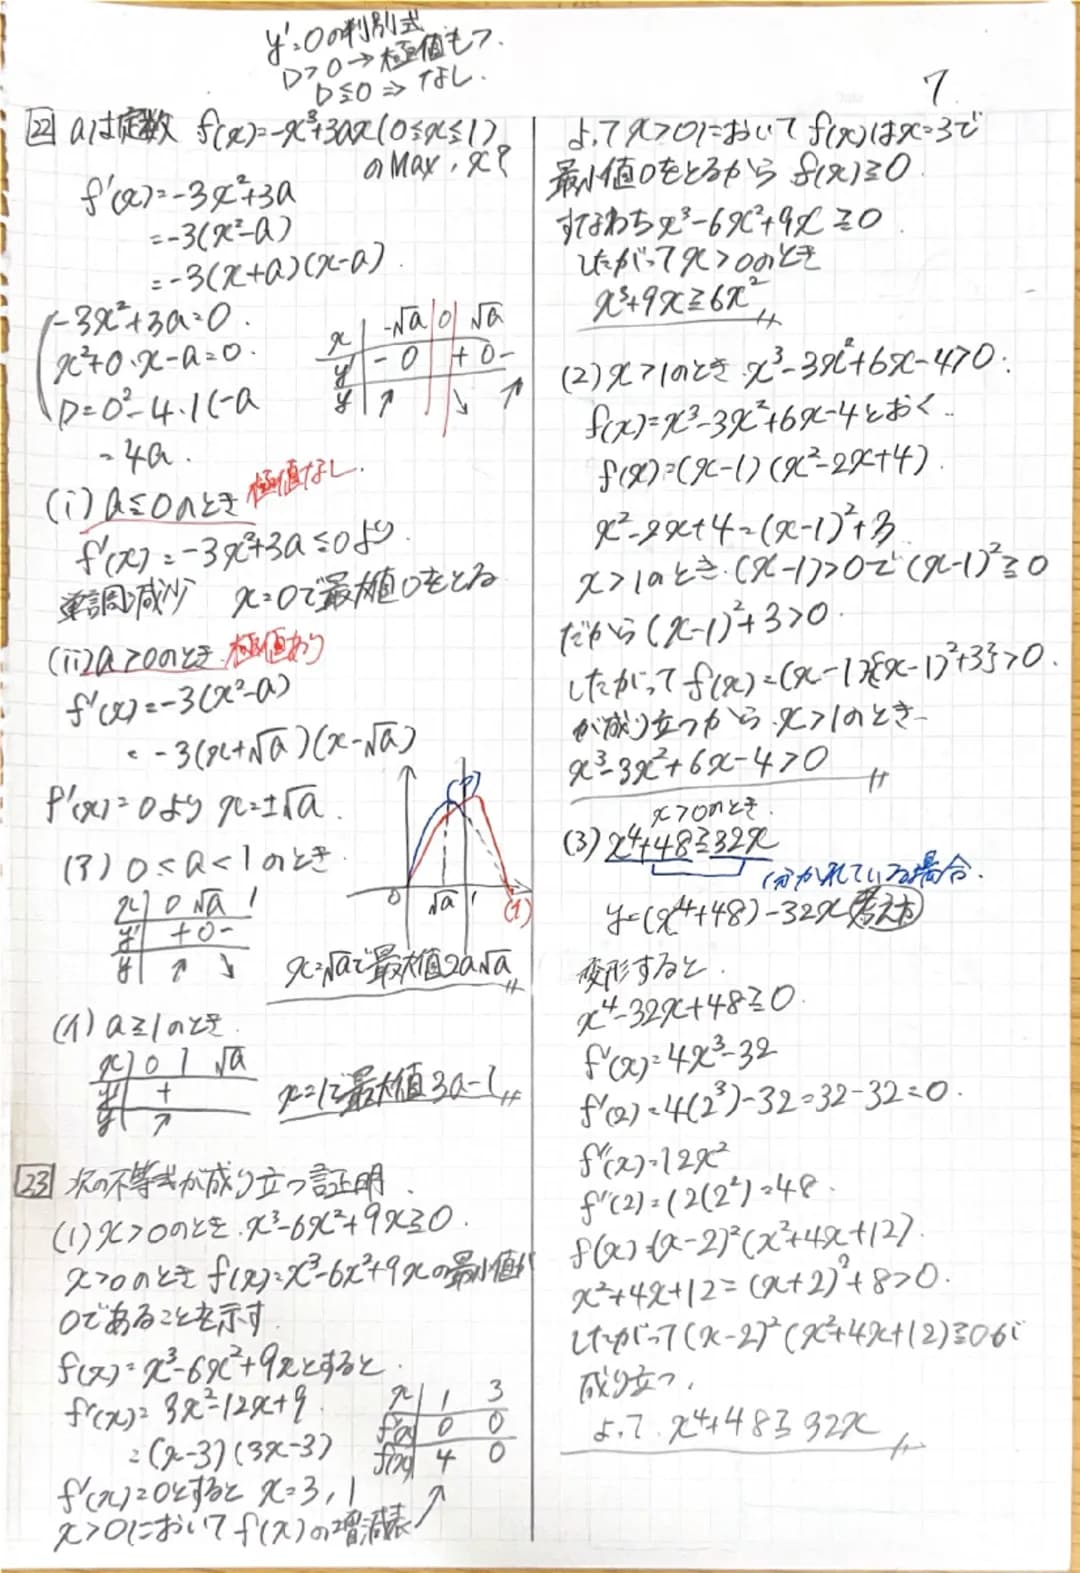 y'=0の判別式
D>0→極値もつ.
D≦0⇒なし.
7
22 aは定数 f(x)=-x³+3ax(0≦x≦1)
のMax, x?
f'(x)=-3x²+3a
=-3(x²-a)
=-3(x+a)(x-a).
-3x²+3a=0.
x²+0·x-a=0.
D=0²-4·1(-a
=4a.
x -√a 0 √a
y' - 0 + 0 -
y ↗ ↘ ↗
(i) a≦0のとき 極値なし.
f'(x)=-3x²+3a≦0より
単調減少 x=0で最大値0をとる
(ii) a>0のとき 極値あり
f'(x)=-3(x²-a)
=-3(x+√a)(x-√a)
f'(x)=0より x=±√a.
(ア) 0<a<1のとき.
x 0 √a 1
y' + 0 -
y ↗ ↘
(ア)
0 √a 1
(イ)
x=√aで最大値2a√a
(イ) a≧1のとき.
x 0 1 √a
y' +
y ↗
x=1で最大値3a-1
23 次の不等式が成り立つ証明.
(1) x>0のとき.x³-6x²+9x≧0.
x>0のとき f(x)=x³-6x²+9xの最小値が
0であることを示す
f(x)=x³-6x²+9xとすると.
f'(x)=3x²-12x+9.
=(x-3)(3x-3)
x 1 3
f'(x) 0 0
f(x) 4 0
f'(x)=0とすると x=3,1
x>0において f(x)の増減表↗
よって x>0において f(x)はx=3で
最小値0をとるから f(x)≧0.
すなわち x³-6x²+9x≧0
したがって x>0のとき
x³+9x≧6x²
(2) x>1のとき.x³-3x²+6x-4>0.
f(x)=x³-3x²+6x-4とおく..
f(x)=(x-1)(x²-2x+4).
x²-2x+4=(x-1)²+3.
x>1のとき.(x-1)>0で(x-1)²≧0
だから(x-1)²+3>0.
したがって f(x)=(x-1){(x-1)²+3}>0.
が成り立つから.x>1のとき
x³-3x²+6x-4>0
x>0のとき.
(3) x⁴+48≧32x
分かれている場合.
y=(x⁴+48)-32x 考え方
変形すると.
x⁴-32x+48≧0.
f'(x)=4x³-32
f'(2)=4(2³)-32=32-32=0.
f''(x)=12x²
f''(2)=12(2²)=48.
f(x)=(x-2)²(x²+4x+12).
x²+4x+12=(x+2)²+8>0.
したがって(x-2)²(x²+4x+12)≧0が
成り立つ.
よって.x⁴+48≧32x